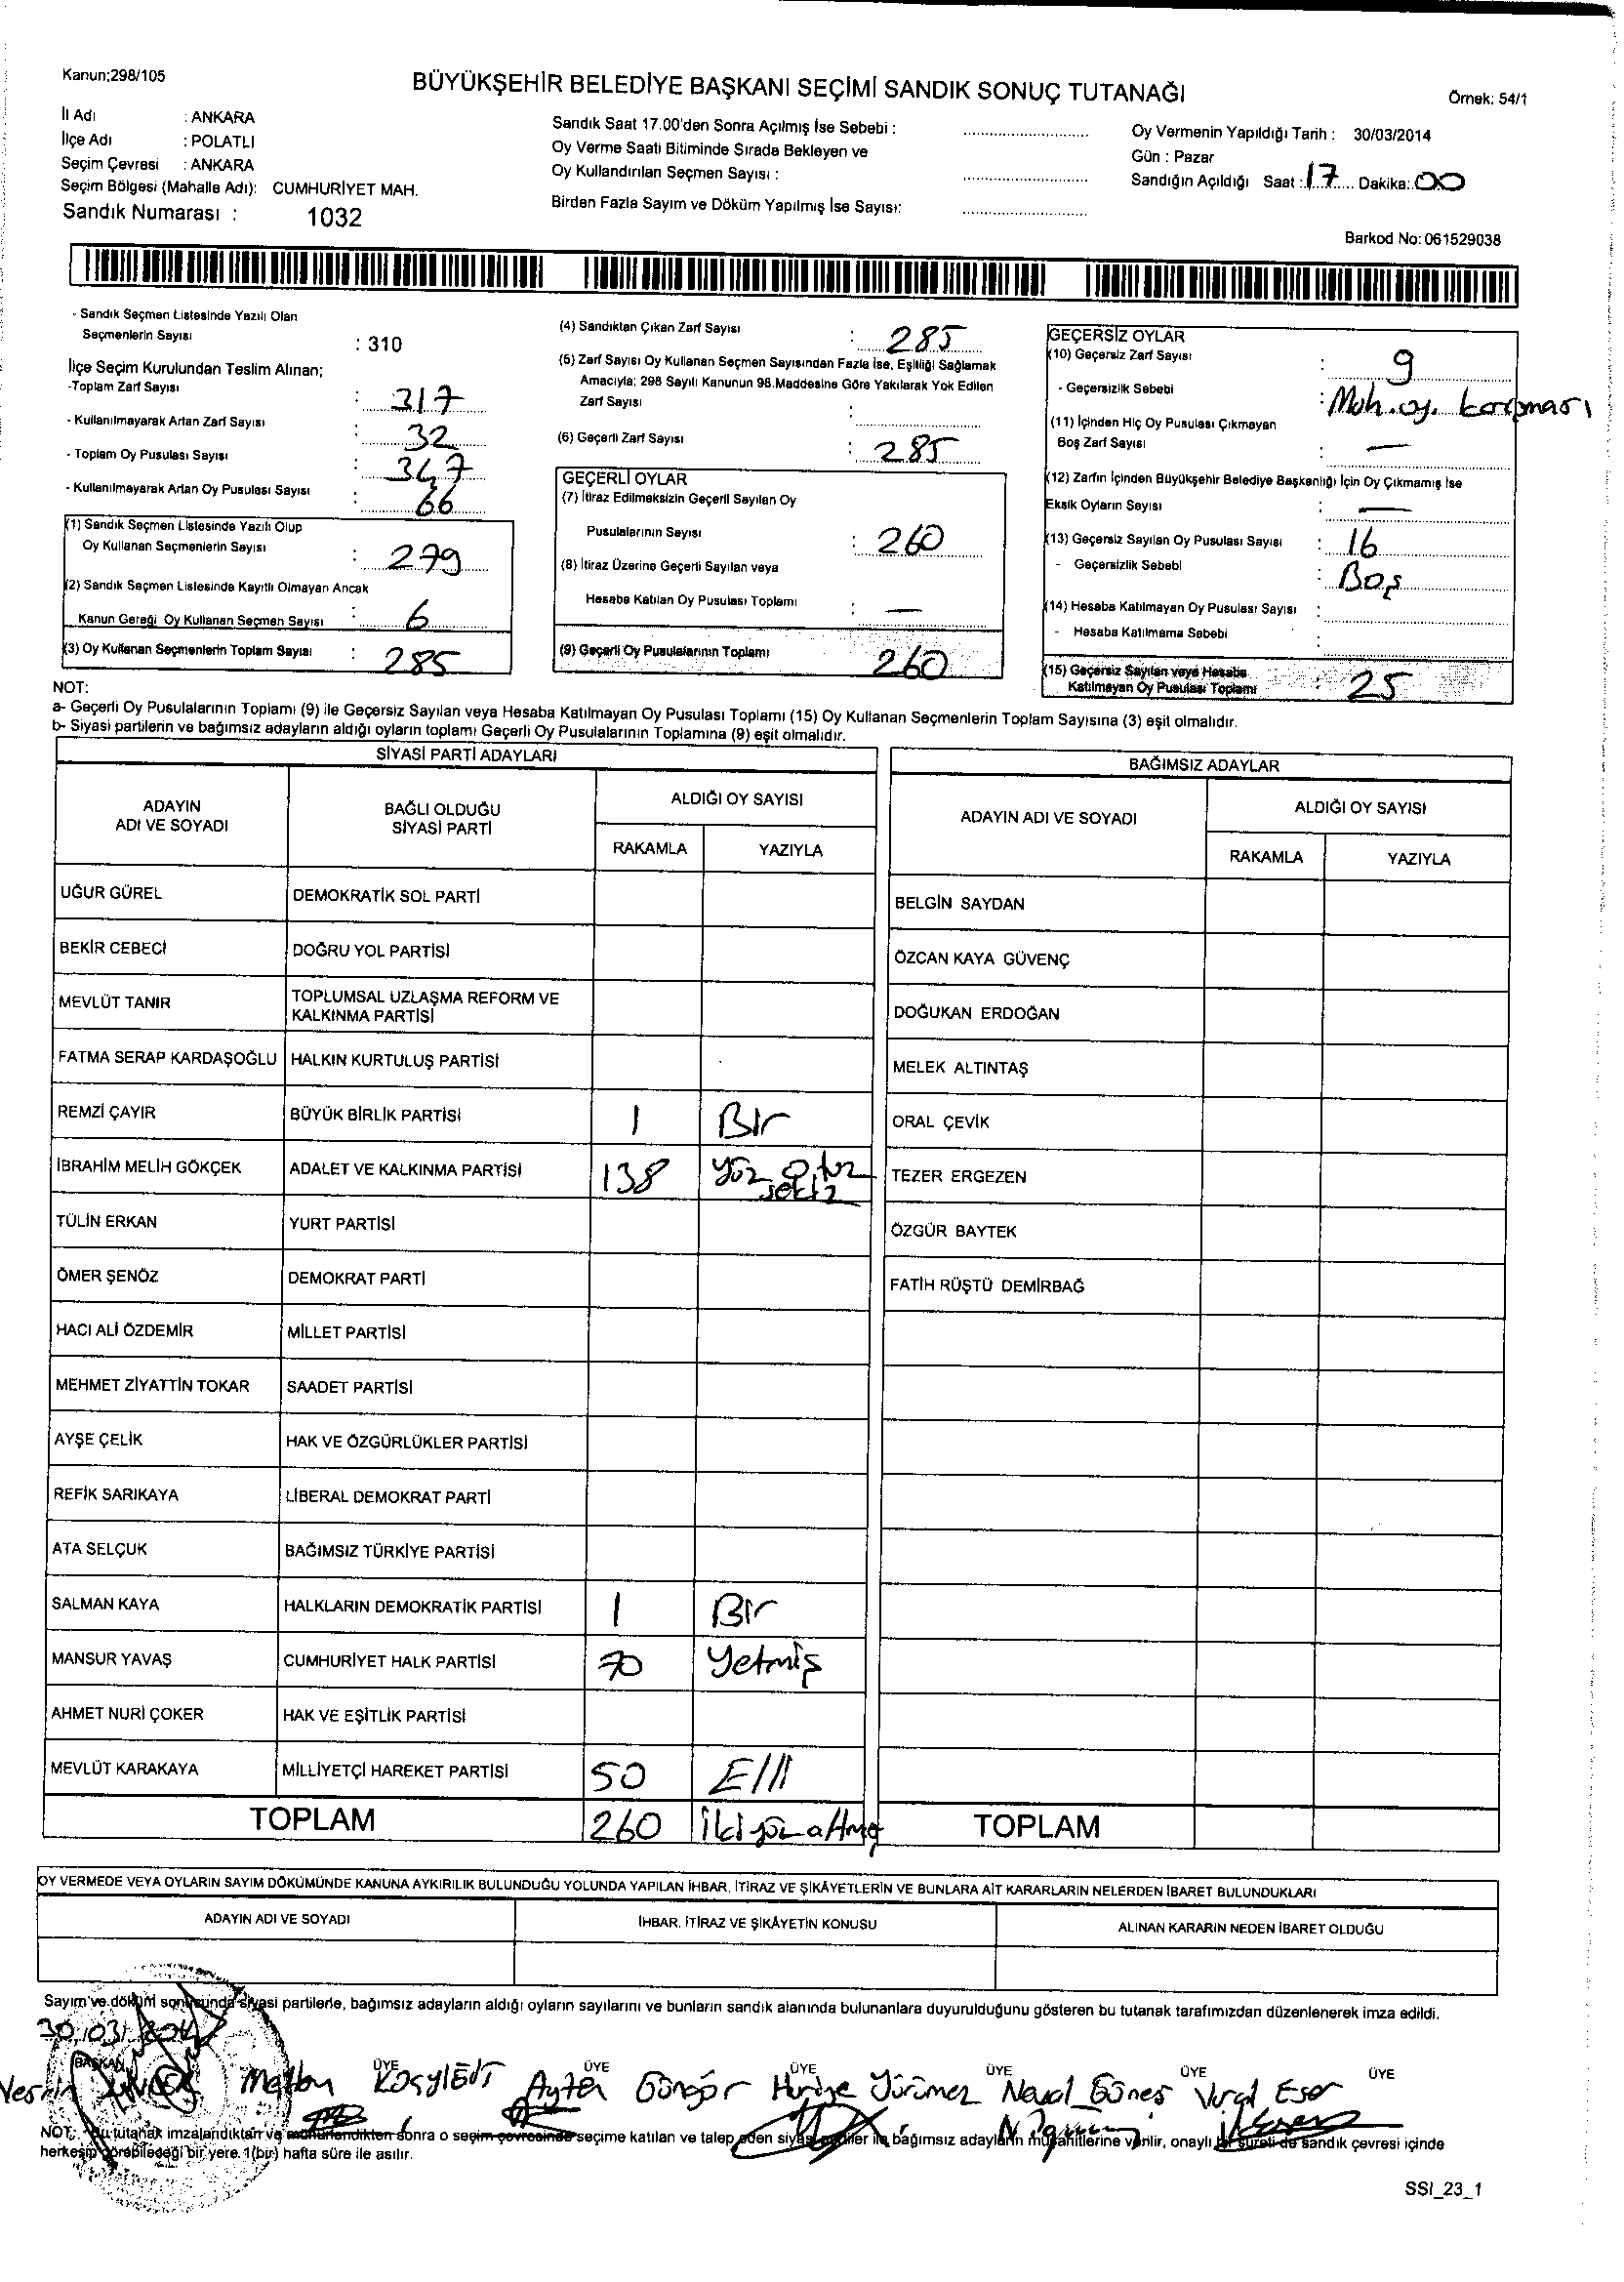 Kanun;298/105
BÜYÜKŞEHİR BELEDİYE BAŞKANI SEÇİMİ SANDIK SONUÇ TUTANAĞI
Örnek: 54/1
İl Adı : ANKARA
İlçe Adı : POLATLI
Seçim Çevresi : ANKARA
Seçim Bölgesi (Mahalle Adı): CUMHURİYET MAH.
Sandık Numarası : 1032
Sandık Saat 17.00'den Sonra Açılmış İse Sebebi :
Oy Verme Saati Bitiminde Sırada Bekleyen ve
Oy Kullandırılan Seçmen Sayısı :
Birden Fazla Sayım ve Döküm Yapılmış İse Sayısı:
Oy Vermenin Yapıldığı Tarih : 30/03/2014
Gün : Pazar
Sandığın Açıldığı Saat : 17 Dakika: 00
Barkod No: 061529038
- Sandık Seçmen Listesinde Yazılı Olan
Seçmenlerin Sayısı : 310
İlçe Seçim Kurulundan Teslim Alınan;
-Toplam Zarf Sayısı : 317
- Kullanılmayarak Artan Zarf Sayısı : 32
- Toplam Oy Pusulası Sayısı : 347
- Kullanılmayarak Artan Oy Pusulası Sayısı : 66
(1) Sandık Seçmen Listesinde Yazılı Olup
Oy Kullanan Seçmenlerin Sayısı : 279
(2) Sandık Seçmen Listesinde Kayıtlı Olmayan Ancak
Kanun Gereği Oy Kullanan Seçmen Sayısı : 6
(3) Oy Kullanan Seçmenlerin Toplam Sayısı : 285
(4) Sandıktan Çıkan Zarf Sayısı : 285
(5) Zarf Sayısı Oy Kullanan Seçmen Sayısından Fazla İse, Eşitliği Sağlamak
Amacıyla; 298 Sayılı Kanunun 98.Maddesine Göre Yakılarak Yok Edilen
Zarf Sayısı :
(6) Geçerli Zarf Sayısı : 285
GEÇERLİ OYLAR
(7) İtiraz Edilmeksizin Geçerli Sayılan Oy
Pusulalarının Sayısı : 260
(8) İtiraz Üzerine Geçerli Sayılan veya
Hesaba Katılan Oy Pusulası Toplamı : —
(9) Geçerli Oy Pusulalarının Toplamı 260
GEÇERSİZ OYLAR
(10) Geçersiz Zarf Sayısı : 9
- Geçersizlik Sebebi : Muh. oy. karışması
(11) İçinden Hiç Oy Pusulası Çıkmayan
Boş Zarf Sayısı : —
(12) Zarfın İçinden Büyükşehir Belediye Başkanlığı İçin Oy Çıkmamış İse
Eksik Oyların Sayısı : —
(13) Geçersiz Sayılan Oy Pusulası Sayısı : 16
- Geçersizlik Sebebi : Boş
(14) Hesaba Katılmayan Oy Pusulası Sayısı :
- Hesaba Katılmama Sebebi :
(15) Geçersiz Sayılan veya Hesaba
Katılmayan Oy Pusulası Toplamı : 25
NOT:
a- Geçerli Oy Pusulalarının Toplamı (9) ile Geçersiz Sayılan veya Hesaba Katılmayan Oy Pusulası Toplamı (15) Oy Kullanan Seçmenlerin Toplam Sayısına (3) eşit olmalıdır.
b- Siyasi partilerin ve bağımsız adayların aldığı oyların toplamı Geçerli Oy Pusulalarının Toplamına (9) eşit olmalıdır.
SİYASİ PARTİ ADAYLARI
ADAYIN ADI VE SOYADI
BAĞLI OLDUĞU SİYASİ PARTİ
ALDIĞI OY SAYISI
RAKAMLA YAZIYLA
UĞUR GÜREL DEMOKRATİK SOL PARTİ
BEKİR CEBECİ DOĞRU YOL PARTİSİ
MEVLÜT TANIR TOPLUMSAL UZLAŞMA REFORM VE
KALKINMA PARTİSİ
FATMA SERAP KARDAŞOĞLU HALKIN KURTULUŞ PARTİSİ
REMZİ ÇAYIR BÜYÜK BİRLİK PARTİSİ 1 Bir
İBRAHİM MELİH GÖKÇEK ADALET VE KALKINMA PARTİSİ 138 yüz otuz
sekiz
TÜLİN ERKAN YURT PARTİSİ
ÖMER ŞENÖZ DEMOKRAT PARTİ
HACI ALİ ÖZDEMİR MİLLET PARTİSİ
MEHMET ZİYATTİN TOKAR SAADET PARTİSİ
AYŞE ÇELİK HAK VE ÖZGÜRLÜKLER PARTİSİ
REFİK SARIKAYA LİBERAL DEMOKRAT PARTİ
ATA SELÇUK BAĞIMSIZ TÜRKİYE PARTİSİ
SALMAN KAYA HALKLARIN DEMOKRATİK PARTİSİ 1 Bir
MANSUR YAVAŞ CUMHURİYET HALK PARTİSİ 70 Yetmiş
AHMET NURİ ÇOKER HAK VE EŞİTLİK PARTİSİ
MEVLÜT KARAKAYA MİLLİYETÇİ HAREKET PARTİSİ 50 Elli
TOPLAM 260 İkiyüz altmış
BAĞIMSIZ ADAYLAR
ADAYIN ADI VE SOYADI
ALDIĞI OY SAYISI
RAKAMLA YAZIYLA
BELGİN SAYDAN
ÖZCAN KAYA GÜVENÇ
DOĞUKAN ERDOĞAN
MELEK ALTINTAŞ
ORAL ÇEVİK
TEZER ERGEZEN
ÖZGÜR BAYTEK
FATİH RÜŞTÜ DEMİRBAĞ
TOPLAM
OY VERMEDE VEYA OYLARIN SAYIM DÖKÜMÜNDE KANUNA AYKIRILIK BULUNDUĞU YOLUNDA YAPILAN İHBAR, İTİRAZ VE ŞİKÂYETLERİN VE BUNLARA AİT KARARLARIN NELERDEN İBARET BULUNDUKLARI
ADAYIN ADI VE SOYADI İHBAR, İTİRAZ VE ŞİKÂYETİN KONUSU ALINAN KARARIN NEDEN İBARET OLDUĞU
Sayım ve döküm sonucunda siyasi partilerle, bağımsız adayların aldığı oyların sayılarını ve bunların sandık alanında bulunanlara duyurulduğunu gösteren bu tutanak tarafımızdan düzenlenerek imza edildi.
30.03.2014
BAŞKAN ÜYE ÜYE ÜYE ÜYE ÜYE ÜYE
Ayten Güngör Huriye Yürümez Neval Güneş Vural Eser
NOT: Bu tutanak imzalandıktan ve mühürlendikten sonra o seçim çevresinde seçime katılan ve talep eden siyasi partiler ile bağımsız adayların müşahitlerine verilir, onaylı bir sureti de sandık çevresi içinde
herkesin görebileceği bir yere 1(bir) hafta süre ile asılır.
SSI_23_1